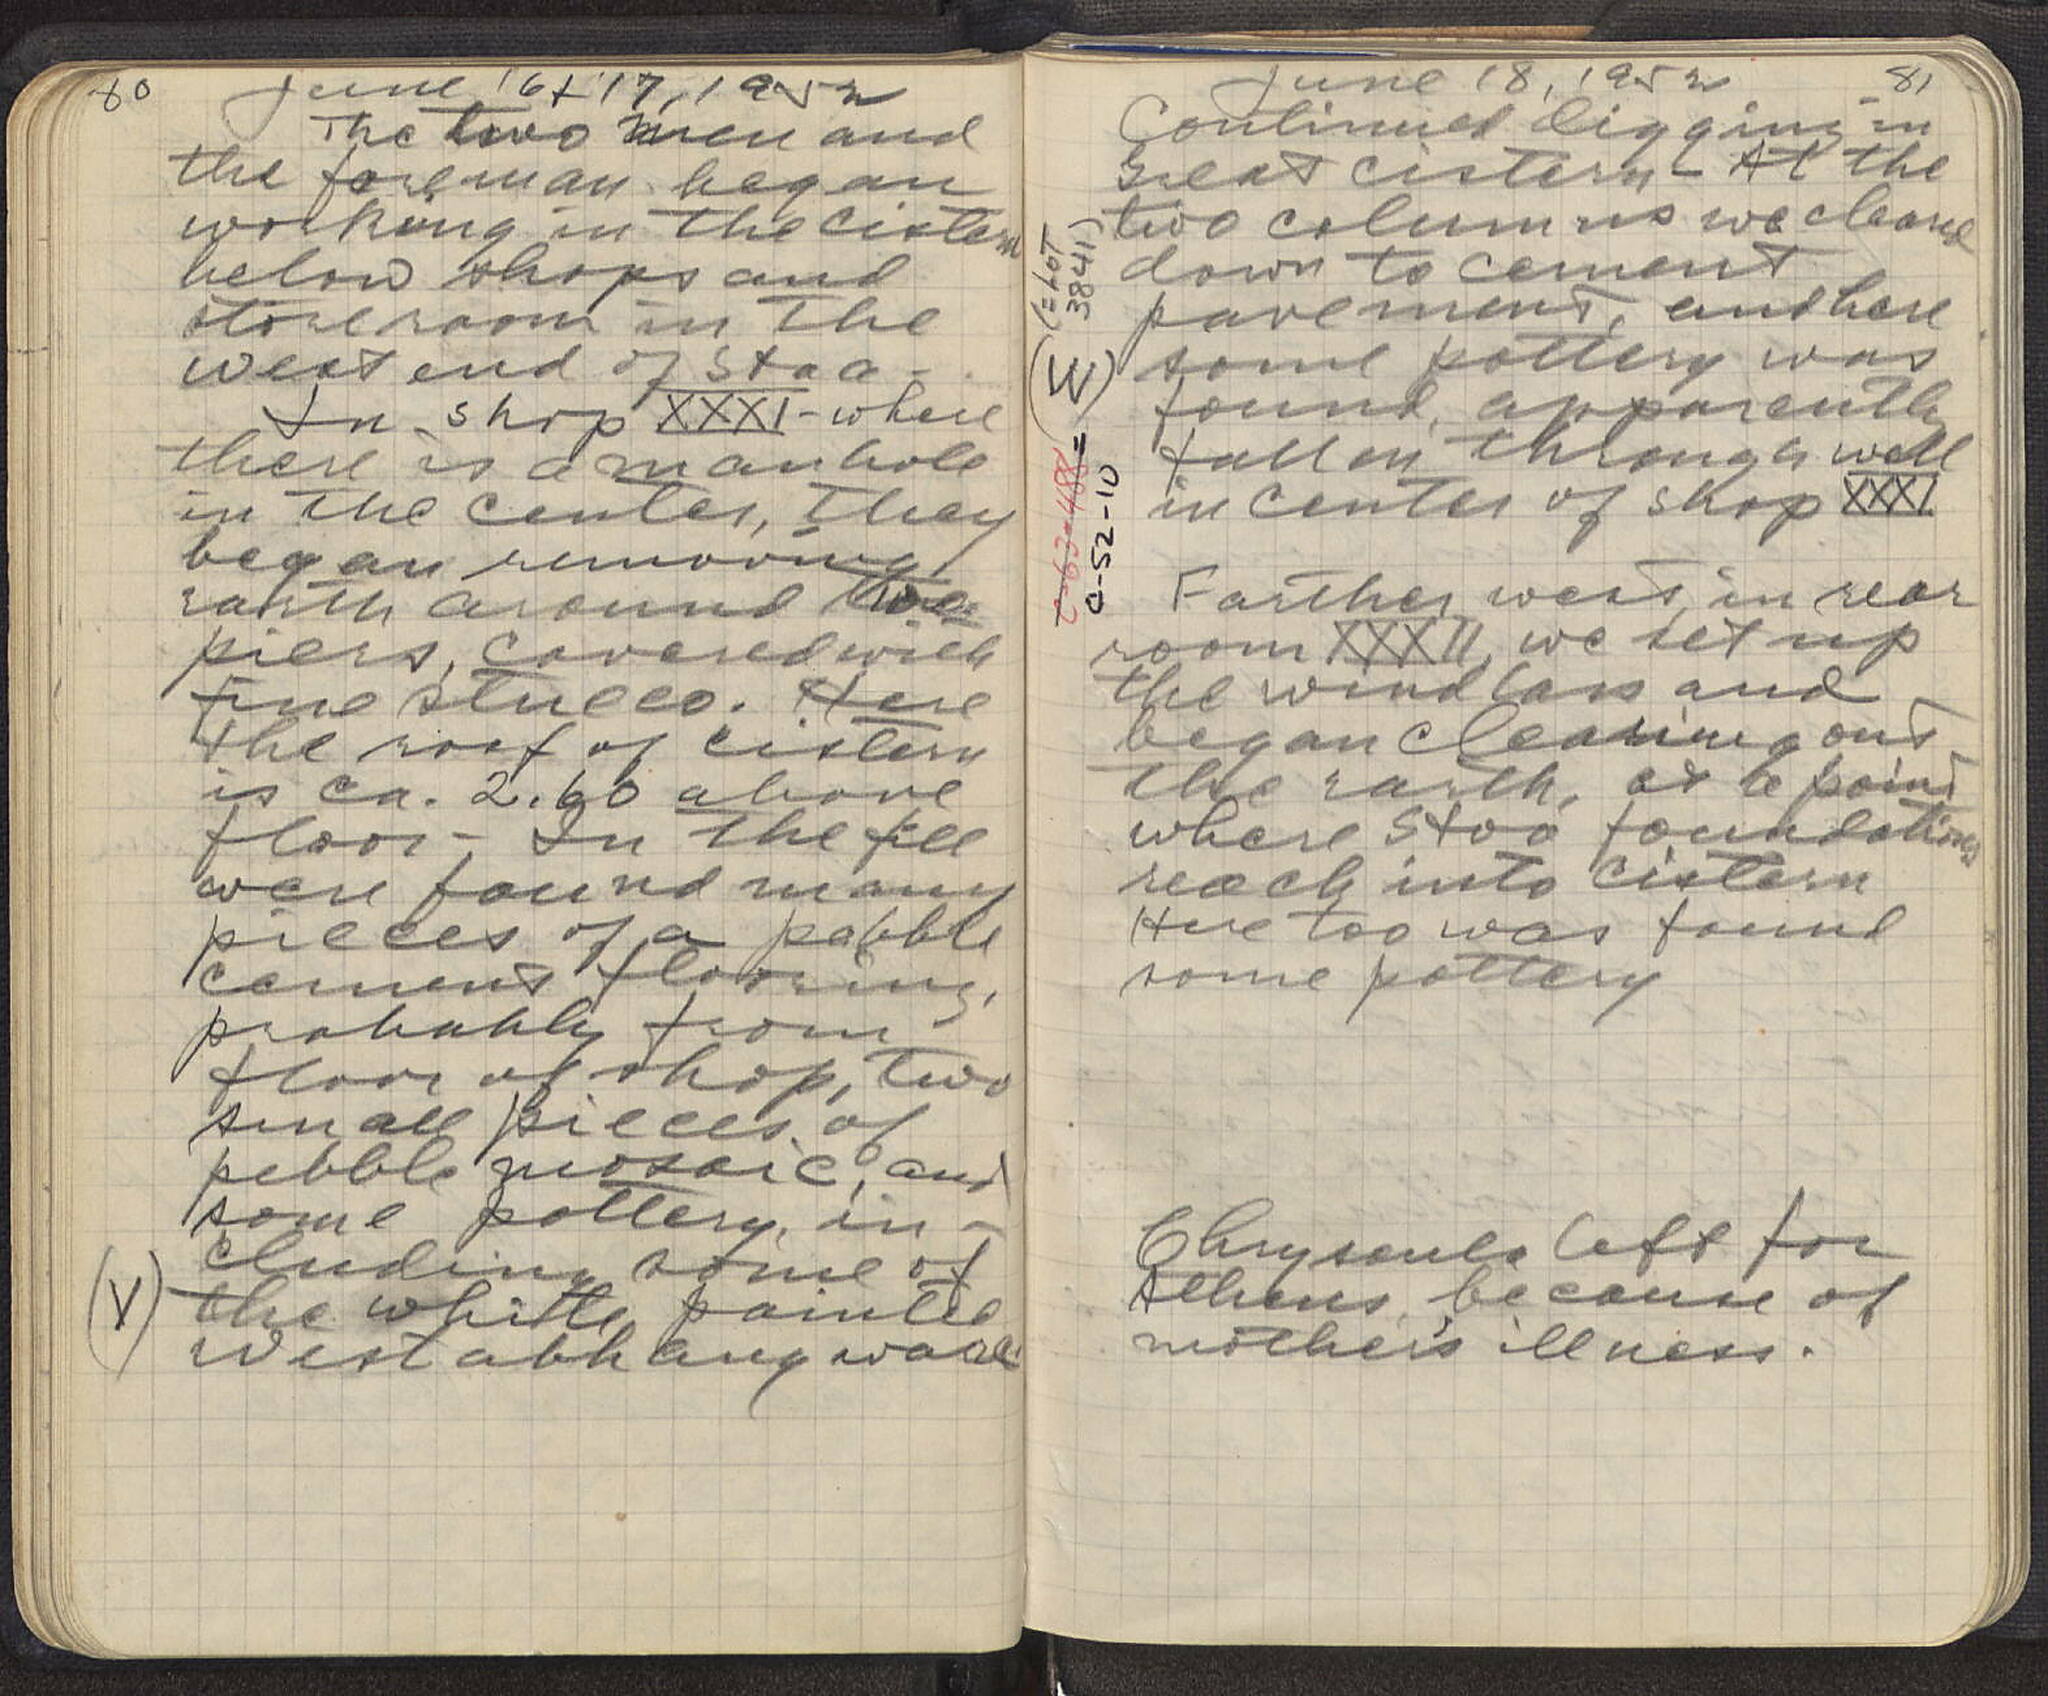 80
June 16 + 17, 1952
The two men and
the foreman began
working in the cistern
below shops and
storeroom in the
west end of Stoa.
In shop XXXI - where
there is a manhole
in the center, they
began removing
earth around two
piers, covered with
fine stucco. Here
the roof of cistern
is ca. 2.60 above
floor - In the fill
were found many
pieces of a pebble
cement flooring,
probably from
floor of shop, two
small pieces of
pebble mosaic, and
some pottery, in-
cluding some of
(V) the white painted
West abhang ware
June 18, 1952 81
Continued digging in
Great cistern - At the
two columns we cleared
down to cement
pavement, and here
some pottery was
found, apparently
fallen through well
in center of shop XXXI
C-63-488 = (W) (= LOT 3841)
C-52-10
Farther west, in rear
room XXXII, we set up
the windlass and
began clearing out
the earth, at a point
where Stoa foundations
reach into cistern
Here too was found
some pottery
Chrysoula left for
Athens, because of
mother's illness.